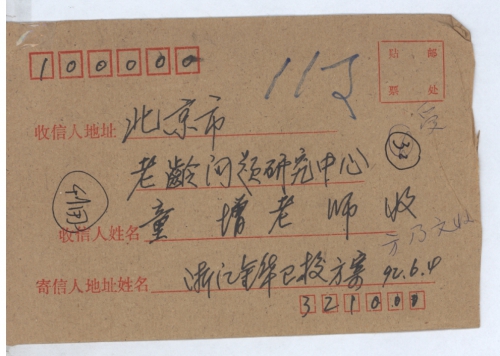 100000
贴 邮
票 处
113
收信人地址 北京市
老龄问题研究中心
33
收信人姓名 童增老师 收
寄信人地址姓名 浙江金华卫校方案 92.6.4
321000